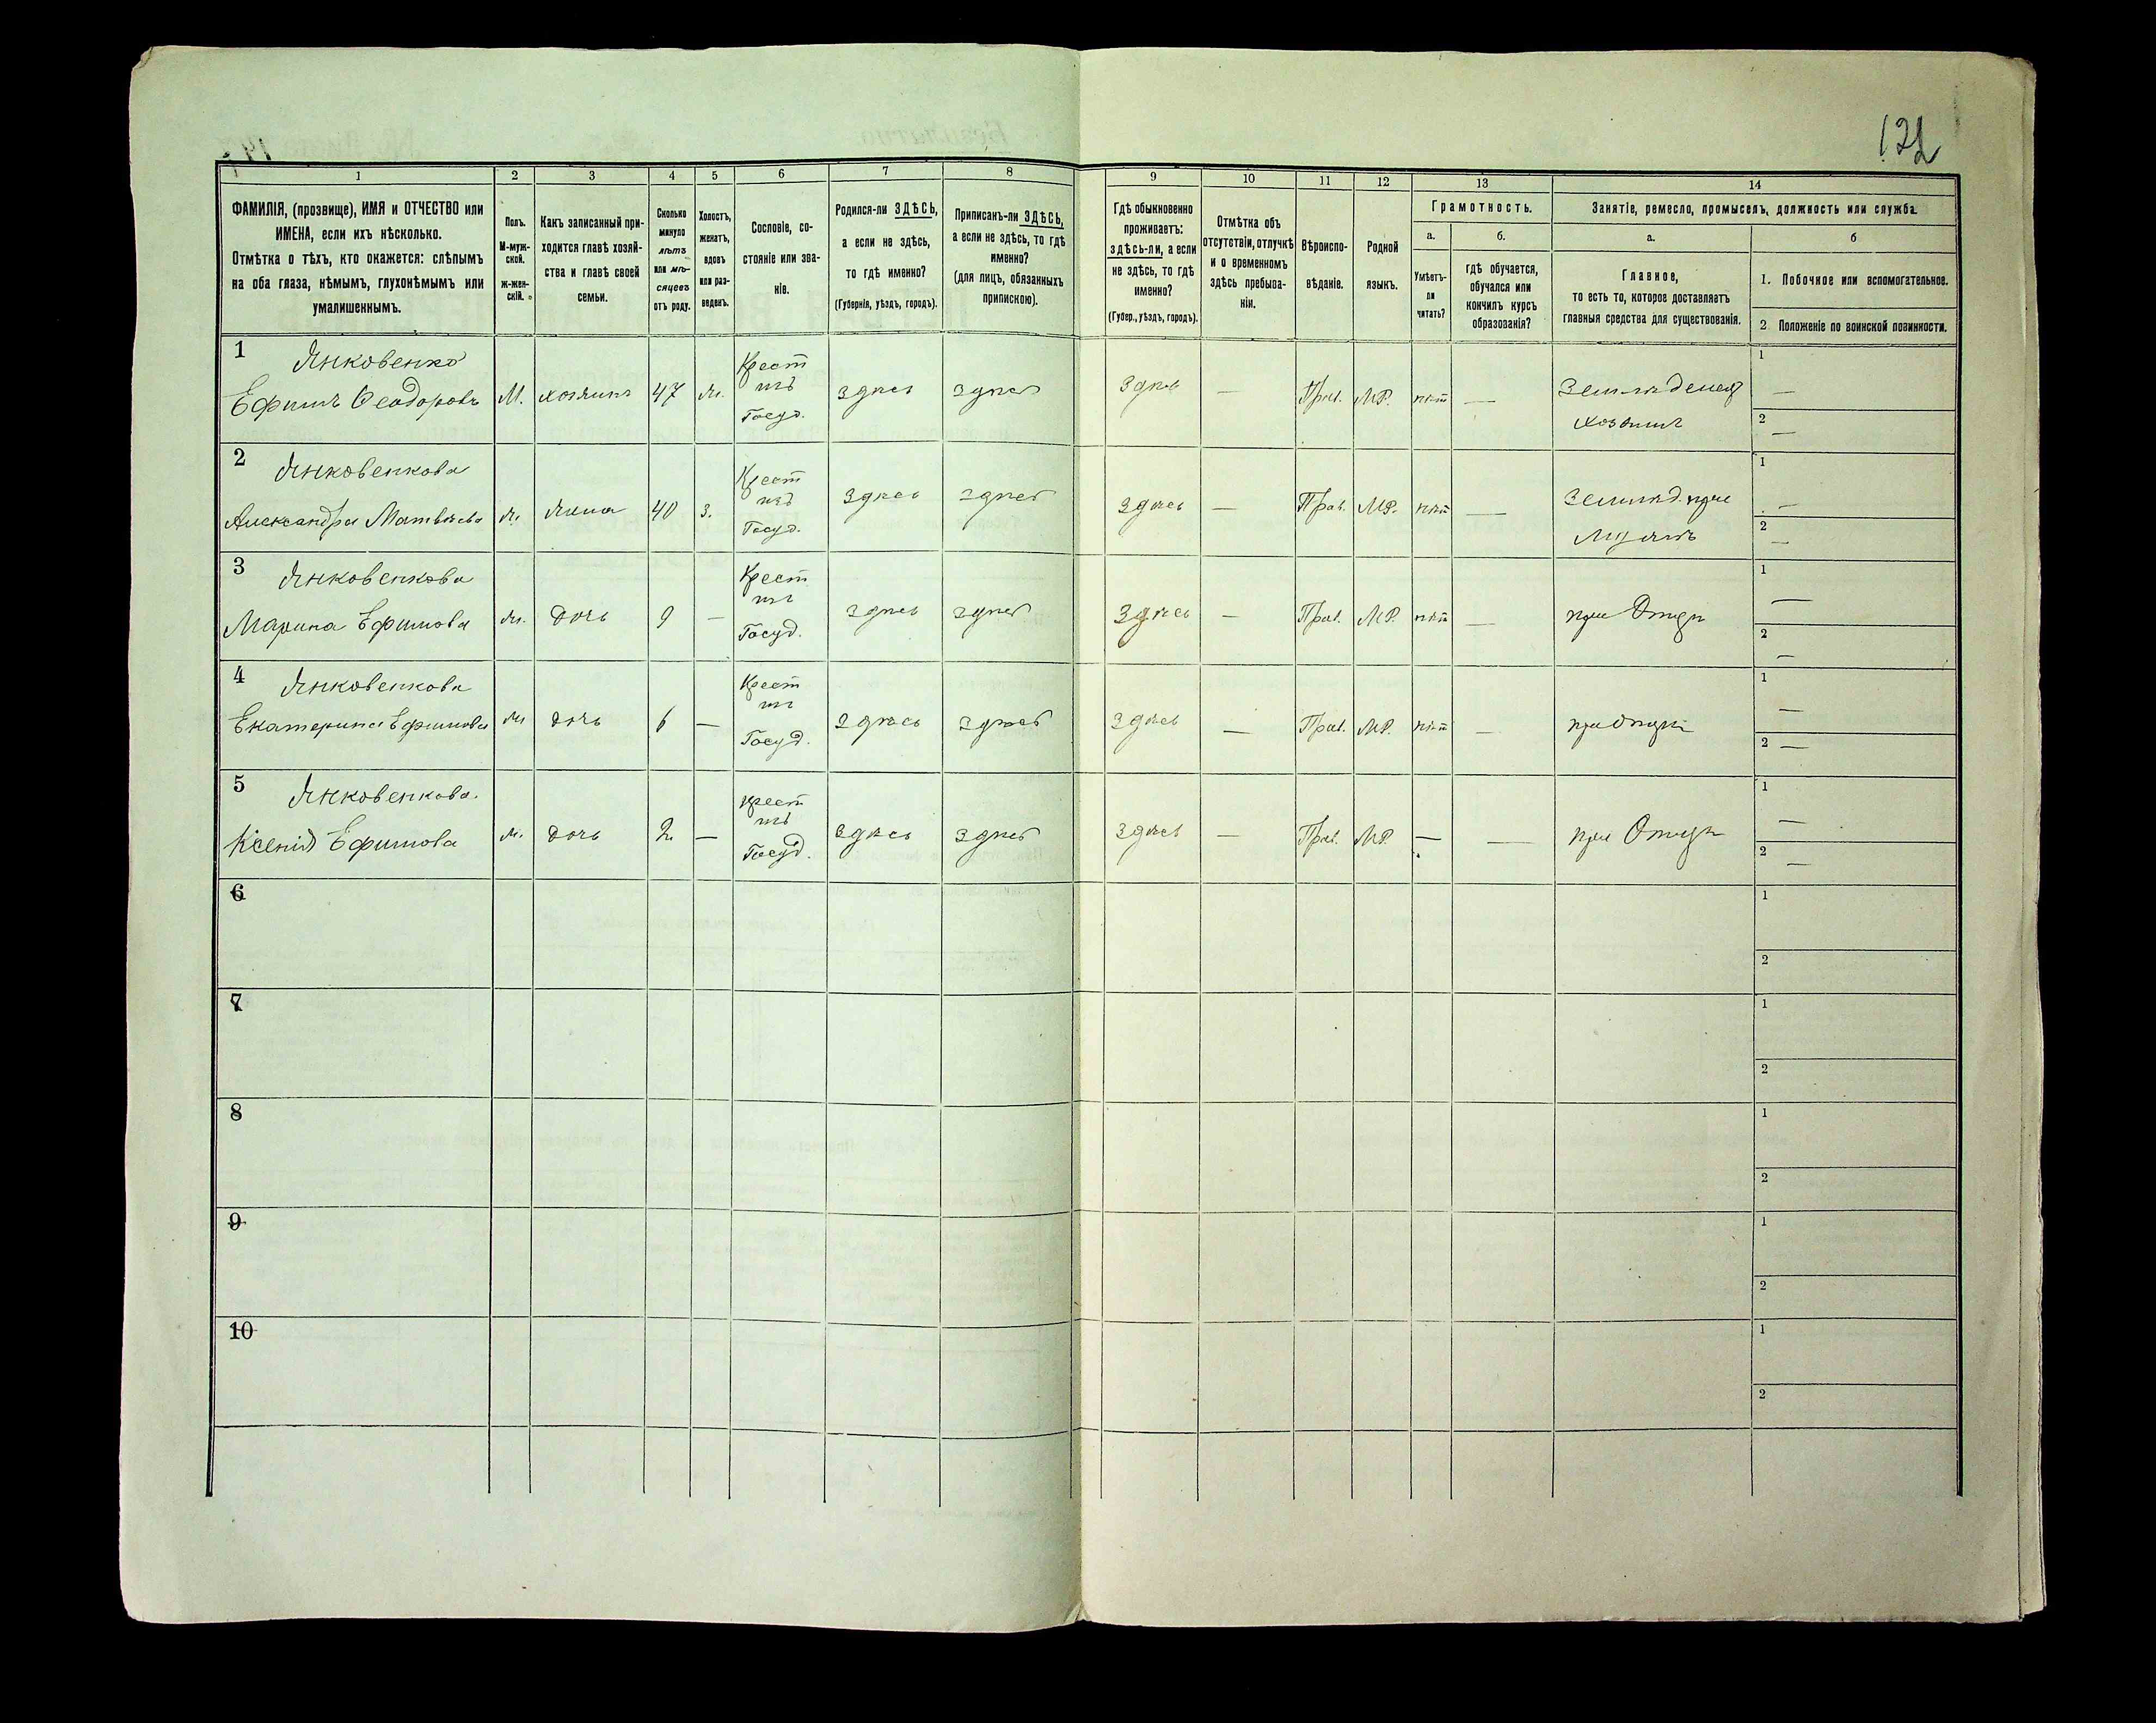 132
1
2
3
4
5
6
7
8
9
10
11
12
13
14
ФАМИЛІЯ, (прозвище), ИМЯ и ОТЧЕСТВО или
ИМЕНА, если ихъ нѣсколько.
Отмѣтка о тѣхъ, кто окажется: слѣпымъ
на оба глаза, нѣмымъ, глухонѣмымъ или
умалишеннымъ.
Полъ.
М-муж-
ской.
ж-жен-
скій.
Какъ записанный при-
ходится главѣ хозяй-
ства и главѣ своей
семьи.
Сколько
минуло
лѣтъ
или мѣ-
сяцевъ
отъ роду.
Холостъ,
женатъ,
вдовъ
или раз-
веденъ.
Сословіе, со-
стояніе или зва-
ніе.
Родился-ли ЗДѢСЬ,
а если не здѣсь,
то гдѣ именно?
(Губернія, уѣздъ, городъ).
Приписанъ-ли ЗДѢСЬ,
а если не здѣсь, то гдѣ
именно?
(для лицъ, обязанныхъ
припискою).
Гдѣ обыкновенно
проживаетъ:
здѣсь-ли, а если
не здѣсь, то гдѣ
именно?
(Губер., уѣздъ, городъ).
Отмѣтка объ
отсутствіи, отлучкѣ
и о временномъ
здѣсь пребыва-
ніи.
Вѣроиспо-
вѣданіе.
Родной
языкъ.
Грамотность.
а.
б.
Умѣетъ-
ли
читать?
гдѣ обучается,
обучался или
кончилъ курсъ
образованія?
Занятіе, ремесло, промыселъ, должность или служба.
а.
б
Главное,
то есть то, которое доставляетъ
главныя средства для существованія.
1. Побочное или вспомогательное.
2 Положеніе по воинской повинности.
1 Янковенко
Ефимъ Ѳеодоровъ М. хозяинъ 47 ж. Крест изъ Госуд. здѣсь здѣсь здѣсь — Прав. МР. нѣт — Землядѣлец 1 —
хозяинъ 2 —
2 Янковенкова
Александра Матвѣева ж. жена 40 з. Крест изъ Госуд. здѣсь здѣсь здѣсь — Прав. МР. нѣт — Землед. при 1 —
Мужѣ 2 —
3 Янковенкова
Марина Ефимова ж. дочь 9 — Крест изъ Госуд. здѣсь здѣсь здѣсь — Прав. МР. нѣт — при Отцѣ 1 —
2 —
4 Янковенкова
Екатерина Ефимова ж дочь 6 — Крест изъ Госуд. здѣсь здѣсь здѣсь — Прав. МР. нѣт — при Отцѣ 1 —
2 —
5 Янковенкова.
Ксенія Ефимова ж. дочь 2 — Крест изъ Госуд. здѣсь здѣсь здѣсь — Прав. МР. — — при Отцѣ 1 —
2 —
6 1
2
7 1
2
8 1
2
9 1
2
10 1
2